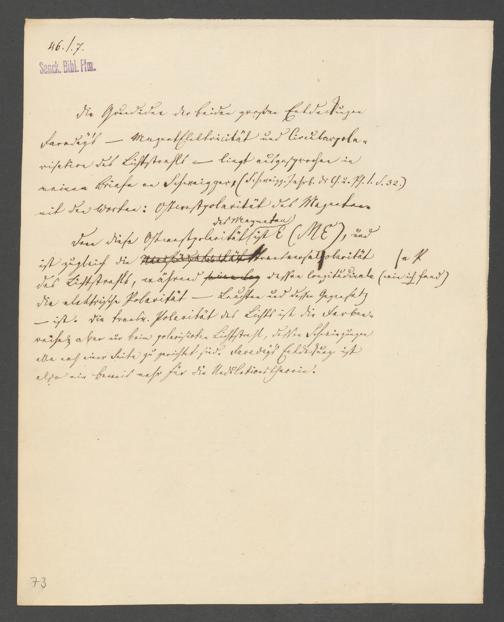 46./7.
Senck. Bibl. Ffm.
Die Grundidee der beiden großen Entdeckungen
Faraday's — Magnetelektricität und Circularpola-
risation des Lichtstrahls — liegt ausgesprochen in
meinem Briefe an Schweigger, (Schweigg. Jahrb. d. Ch. u. Ph. S. 32.)
mit den Worten: Ostwestpolarität des Magneten
des Magneten
Denn diese Ostwestpolarität ist E (ME), und
ist zugleich die Transversalpolarität
des Lichtstrahls, während dessen Longitudinale (wie ich fand)
die elektrische Polarität — Leuchten und dessen Gegensatz
— ist. Die transv. Polarität des Lichts ist die Farben-
reihe, aber nur beim polarisirten Lichtstrahl, dessen Schwingungen
alle nach einer Seite zu gerichtet sind. Faraday's Entdeckung ist
also ein Beweis mehr für die Undulationstheorie.
73